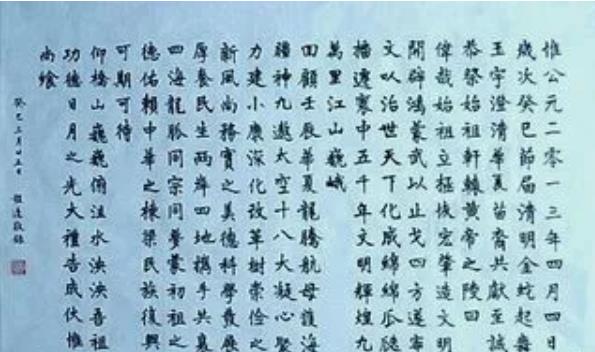 惟公元二零一三年四月四日
歲次癸巳節屆清明金蛇起舞
玉宇澄清華夏苗裔共獻至誠
恭祭始祖軒轅黃帝之陵曰
偉哉始祖立極恢宏肇造文明
開辟鴻蒙武以止戈四方遂寧
文以治世天下化成綿綿瓜瓞
播遷寰中五千年文明輝煌九
萬里江山巍峨
回顧壬辰華夏龍騰航母護海
疆神九遨太空十八大凝心聚
力建小康深化改革樹崇儉之
新風尚務實之美德科學發展
厚養民生兩岸四地攜手共襄
四海龍脈同宗同夢蒙初祖之
德佑賴中華之棟梁民族復興
可期可待
仰橋山巍巍俯沮水泱泱吾祖
功德日月之光大禮告成伏惟
尚饗
癸巳三月廿五日